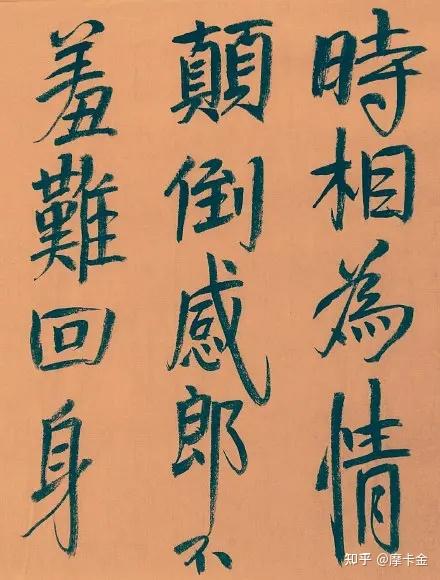 時相為情
顛倒感郎不
羞難回身
知乎 @摩卡金